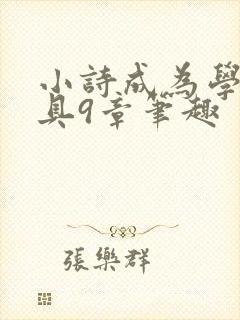 小詩成為學
具9章筆趣
張樂群